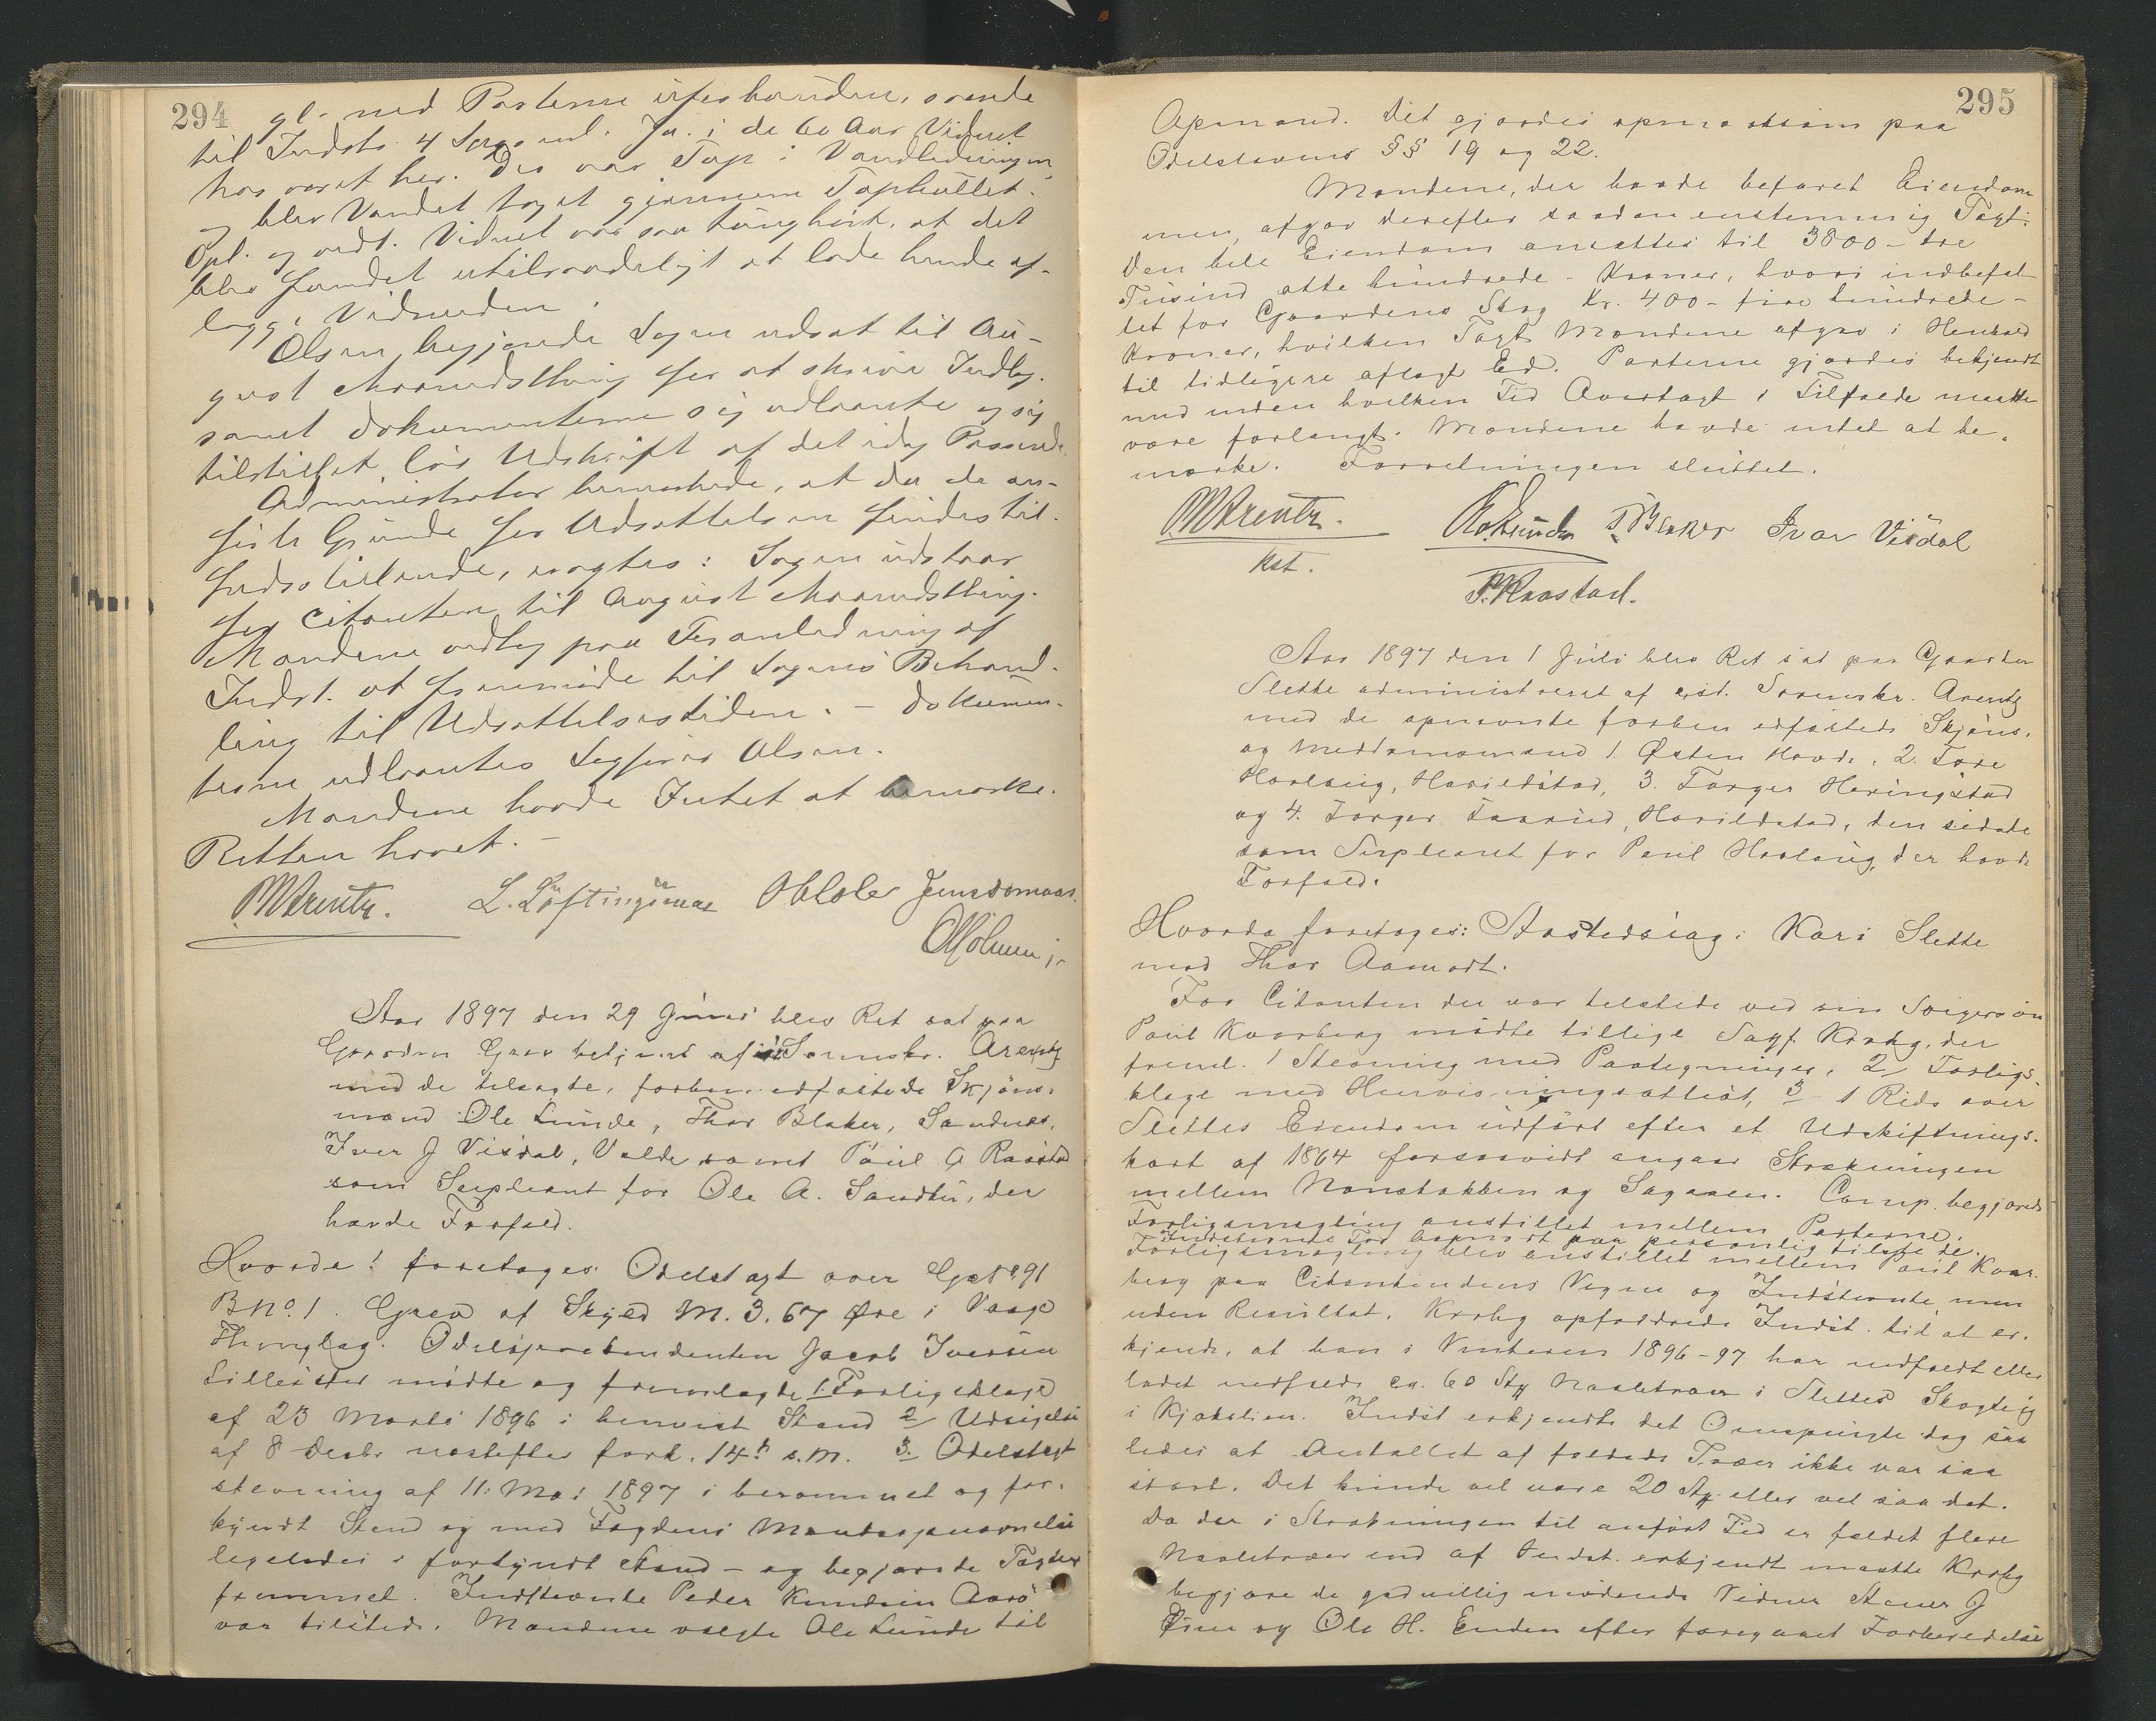 294
gl. med Parterne uforbunden, svarede
til Indsts. 4 Spgsml. Ja. i de 60 Aar Vidnet
har været her. Der var Tap i Vandledningen,
og blev Vandet taget gjennem Taphullet.
Opl. og vedt. Vidnet var saa tunghørt, at det
blev fundet utilraadeligt at lade hende af-
lægge Vidneeden.
Olsen begjærede Sagen udsat til Au-
gust Maanedsthing for at skrive Indlæg
samt Dokumenterne sig udlaante og sig
tilstillet løs Udskrift af det idag Passerede.
Administrator bemærkede, at da de an-
førte Grunde for Udsættelsen findes til-
fredsstillende, vragtes: Sagen udstaar
for Citanten til August Maanedsthing.
Mandene vedtog paa Foranledning af
Indst. at fremmøde til Sagens Behand-
ling til Udsættelsestiden. – Dokumen-
terne udlaantes Sagfører Olsen.
Mandene havde Intet at bemærke.
Retten hævet. –
M Arentz. L. Løftingsmo O Klole Jens Domaas.
O Holmen jr
Aar 1897 den 29 Juni blev Ret sat paa
Gaarden Grev betjent af Sorenskr. Arentz
med de tilsagte, forhen edfæstede Skjøns-
mænd Ole Lunde, Thor Blaker, Sandnes,
Iver J Visdal, Valde samt Poul A Raastad
som Supleant for Ole A. Sandbu, der
havde Forfald.
Hvorda! foretoges Odelstagt over G No 91
B No. 1. Grev af Skyld M. 3. 67 Øre i Vaage
Thinglag. Odelsprætendenten Jacob Iversen
Lilleister mødte og fremlagte 1. Forligsklage
af 23 Marts 1896 i henvist Stand 2/ Udsigelse
af 8 Decbr næstefter fork. 14de s. M. 3. Odelstagt
stevning af 11. Mai 1897 i berammet og for-
kyndt Stand og med Fogdens Mandsopnævnelse
ligeledes i forkyndt Stand – og begjærede Tagten
fremmet. Indstævnte Peder Knudsen Aarø
var tilstede. Mandene valgte Ole Lunde til
295
Opmand. Det gjordes opmærksom paa
Odelslovens §§ 19 og 22.
Mændene, der havde befaret Eiendom-
men, afgav derefter saadan enstemmig Tagt:
Den hele Eiendom ansattes til 3800 – tre
Tusind otte hundrede – Kroner, hvori indbefat-
tet for Gaardens Skog Kr. 400 – fire hundrede –
Kroner, hvilken Tagt Mændene afgav i Henhold
til tidligere aflagt Ed. Parterne gjordes bekjendt
med inden hvilken Tid Overtagt i Tilfælde maatte
være forlangt. Mændene havde intet at be-
mærke. Forretningen sluttet.
M Arentz. O. Lunde T. Blaker Ivar Visdal
kst.
P. Raastad.
Aar 1897 den 1 Juli blev Ret sat paa Gaarden
Slette administreret af Sorenskr. Arentz
med de opnævnte forhen edfæstede Skjøns-
og Meddomsmænd 1. Østen Havde, 2. Tore
Haalaug, Harildstad, 3. Torger Heringstad
og 4. Torger Taarud, Harildstad, den sidste
som Supleant for Poul Haalaug, der havde
Forfald.
Hvorda foretoges: Aastedssag: Kari Slette
mod Thor Aamodt.
For Citanten der var tilstede ved sin Svigersøn
Poul Kvarberg mødte tillige Sagf. Kroby, der
freml. 1 Stevning med Paategninger, 2/ Forligs-
klage med Henvisningsattest, 3 1 Rids over
Slettes Eiendom udført efter et Udskiftnings-
kart af 1864 forsaavidt angaar Strækningen
mellem Nonstakken og Sagaaen. Comp. begjærede
Forligsmægling anstillet mellem Parterne.
Indstævnte Tor Aamodt var personlig tilstede.
Forligsmægling blev anstillet mellem Poul Kvar-
berg paa Citantindens Vegne og Indstævnte, men
uden Resultat. Kroby opfordrede Indst. til at er-
kjende, at han i Vinteren 1896–97 har nedfældt eller
ladet nedfælde ca. 60 Stk Naaletrær i Slettes Skogteig
i Kjøkelien. Indst erkjendte det Omspurgte dog saa
ledes at Antallet af fældede Træer ikke var saa
stort. Det kunde vel være 20 Stk eller vel saa det.
Da der i Strækningen til anført Tid er fældet flere
Naaletræer end af Indst. erkjendt maatte Kroby
begjære de godvillig mødende Vidner Stener J
Øine og Ole H. Enden efter foregaaet Forberedelse